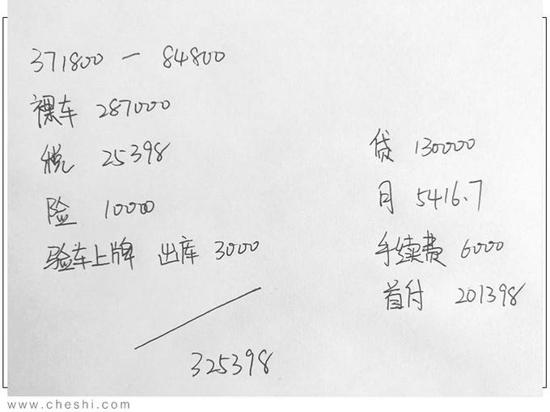 371800 — 84800
裸车 287000
税 25398
险 10000
验车上牌 出库 3000
325398
贷 130000
月 5416.7
手续费 6000
首付 201398
www.cheshi.com